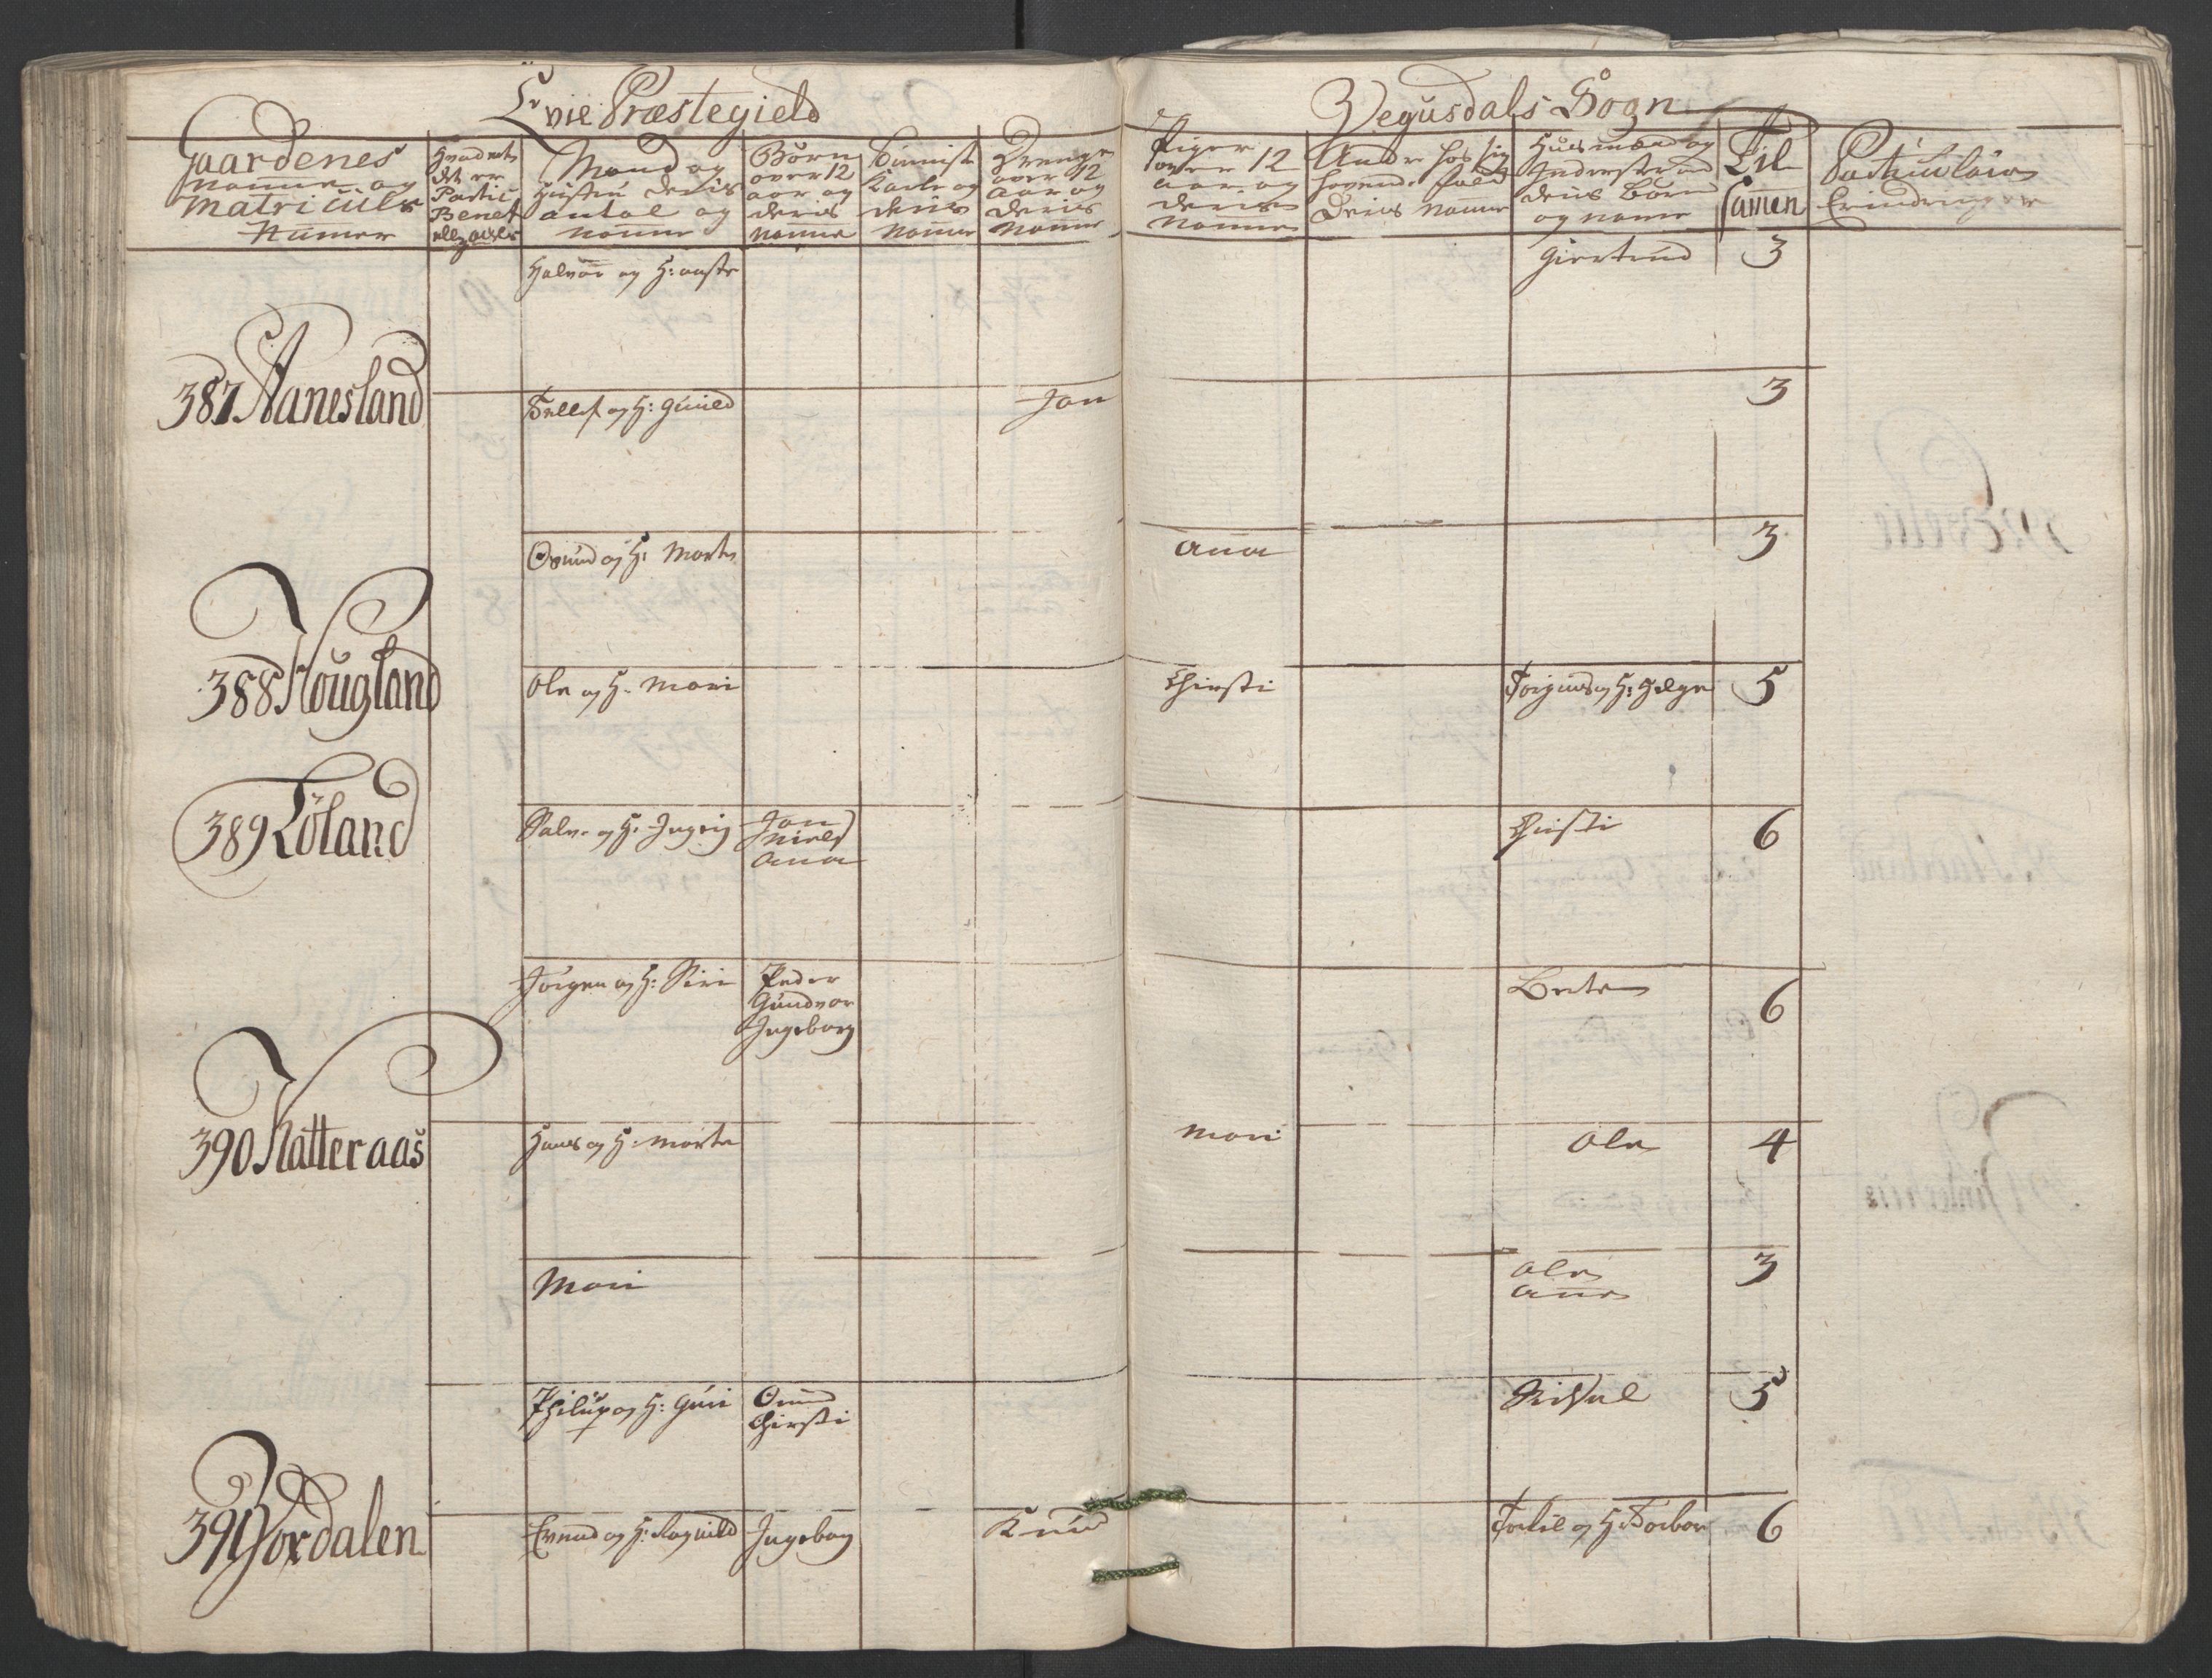 Evie Præstegield
Vegusdals Sogn
Gaardenes
Nafne og
Matriculs
Numer
Hvad net
det er
Partic
Benef
Mand og
Hustru deris
antal og
Nafne
Børn
over 12
aar og
deris
Nafne
Tienniste
Karle og
deris
Nafne
Drenge
over 12
aar og
deris
Nafne
Piger
over 12
aar og
deris
Nafne
Andre hos sig
havende folk
Deris Nafne
Huusmænd og
deris Børn
og Nafne
Til
samen
Erindringer
Halvor og H: aaste
Giertrud 3
387 Aanesland
Tellef og H: Gunild Jon 3
Osmund og H: Marte Anna 3
388 Hougland
Ole og H: Mari Chirsti Torgiuus og H: Helge 5
389 Løland
Salve og H: Ingri Jon
Niels
Anna
Chirsti 6
Jørgen og H: Siri Peder
Gundvor
Ingeborg
Berte 6
390 Katteraas
Hans og H: Marte Mari Ole 4
Mari Ole
Anne
3
Philip og H: Guri Omund
Chirsti
5
391 Jordalen
Evend og H: Ragnild Ingebor Knud Torkil og H: Torbor 6